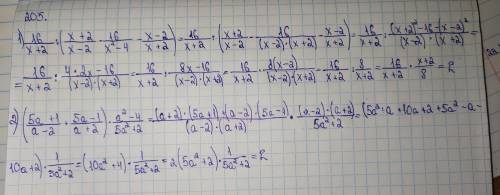 205.
1) 16/(x+2) : ((x+2)/(x-2) - 16/(x²-4) - (x-2)/(x+2)) = 16/(x+2) : ((x+2)/(x-2) - 16/((x-2)·(x+2)) - (x-2)/(x+2)) = 16/(x+2) : ((x+2)²-16-(x-2)²)/((x-2)·(x+2)) =
= 16/(x+2) : (4·2x-16)/((x-2)·(x+2)) = 16/(x+2) : (8x-16)/((x-2)·(x+2)) = 16/(x+2) : 8(x-2)/((x-2)(x+2)) = 16/(x+2) : 8/(x+2) = 16/(x+2) · (x+2)/8 = 2
2) ((5a+1)/(a-2) + (5a-1)/(a+2)) · (a²-4)/(5a²+2) = ((a+2)·(5a+1)+(a-2)·(5a-1))/((a-2)·(a+2)) · ((a-2)·(a+2))/(5a²+2) = (5a²+a+10a+2+5a²-a-
10a+2) · 1/(5a²+2) = (10a²+4) · 1/(5a²+2) = 2(5a²+2) · 1/(5a²+2) = 2